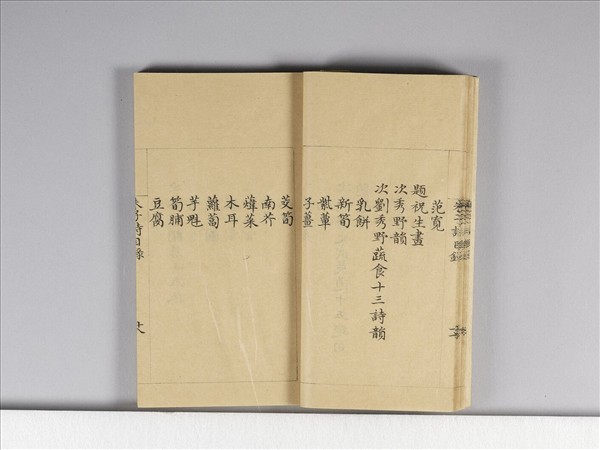 范寬
題祝生畫
次秀野韻
次劉秀野蔬食十三詩韻
乳餅
新筍
紫蕈
子薑
茭筍
南芥
菜
木耳
蘿蔔
芋魁
筍脯
豆腐
朱子詩目錄